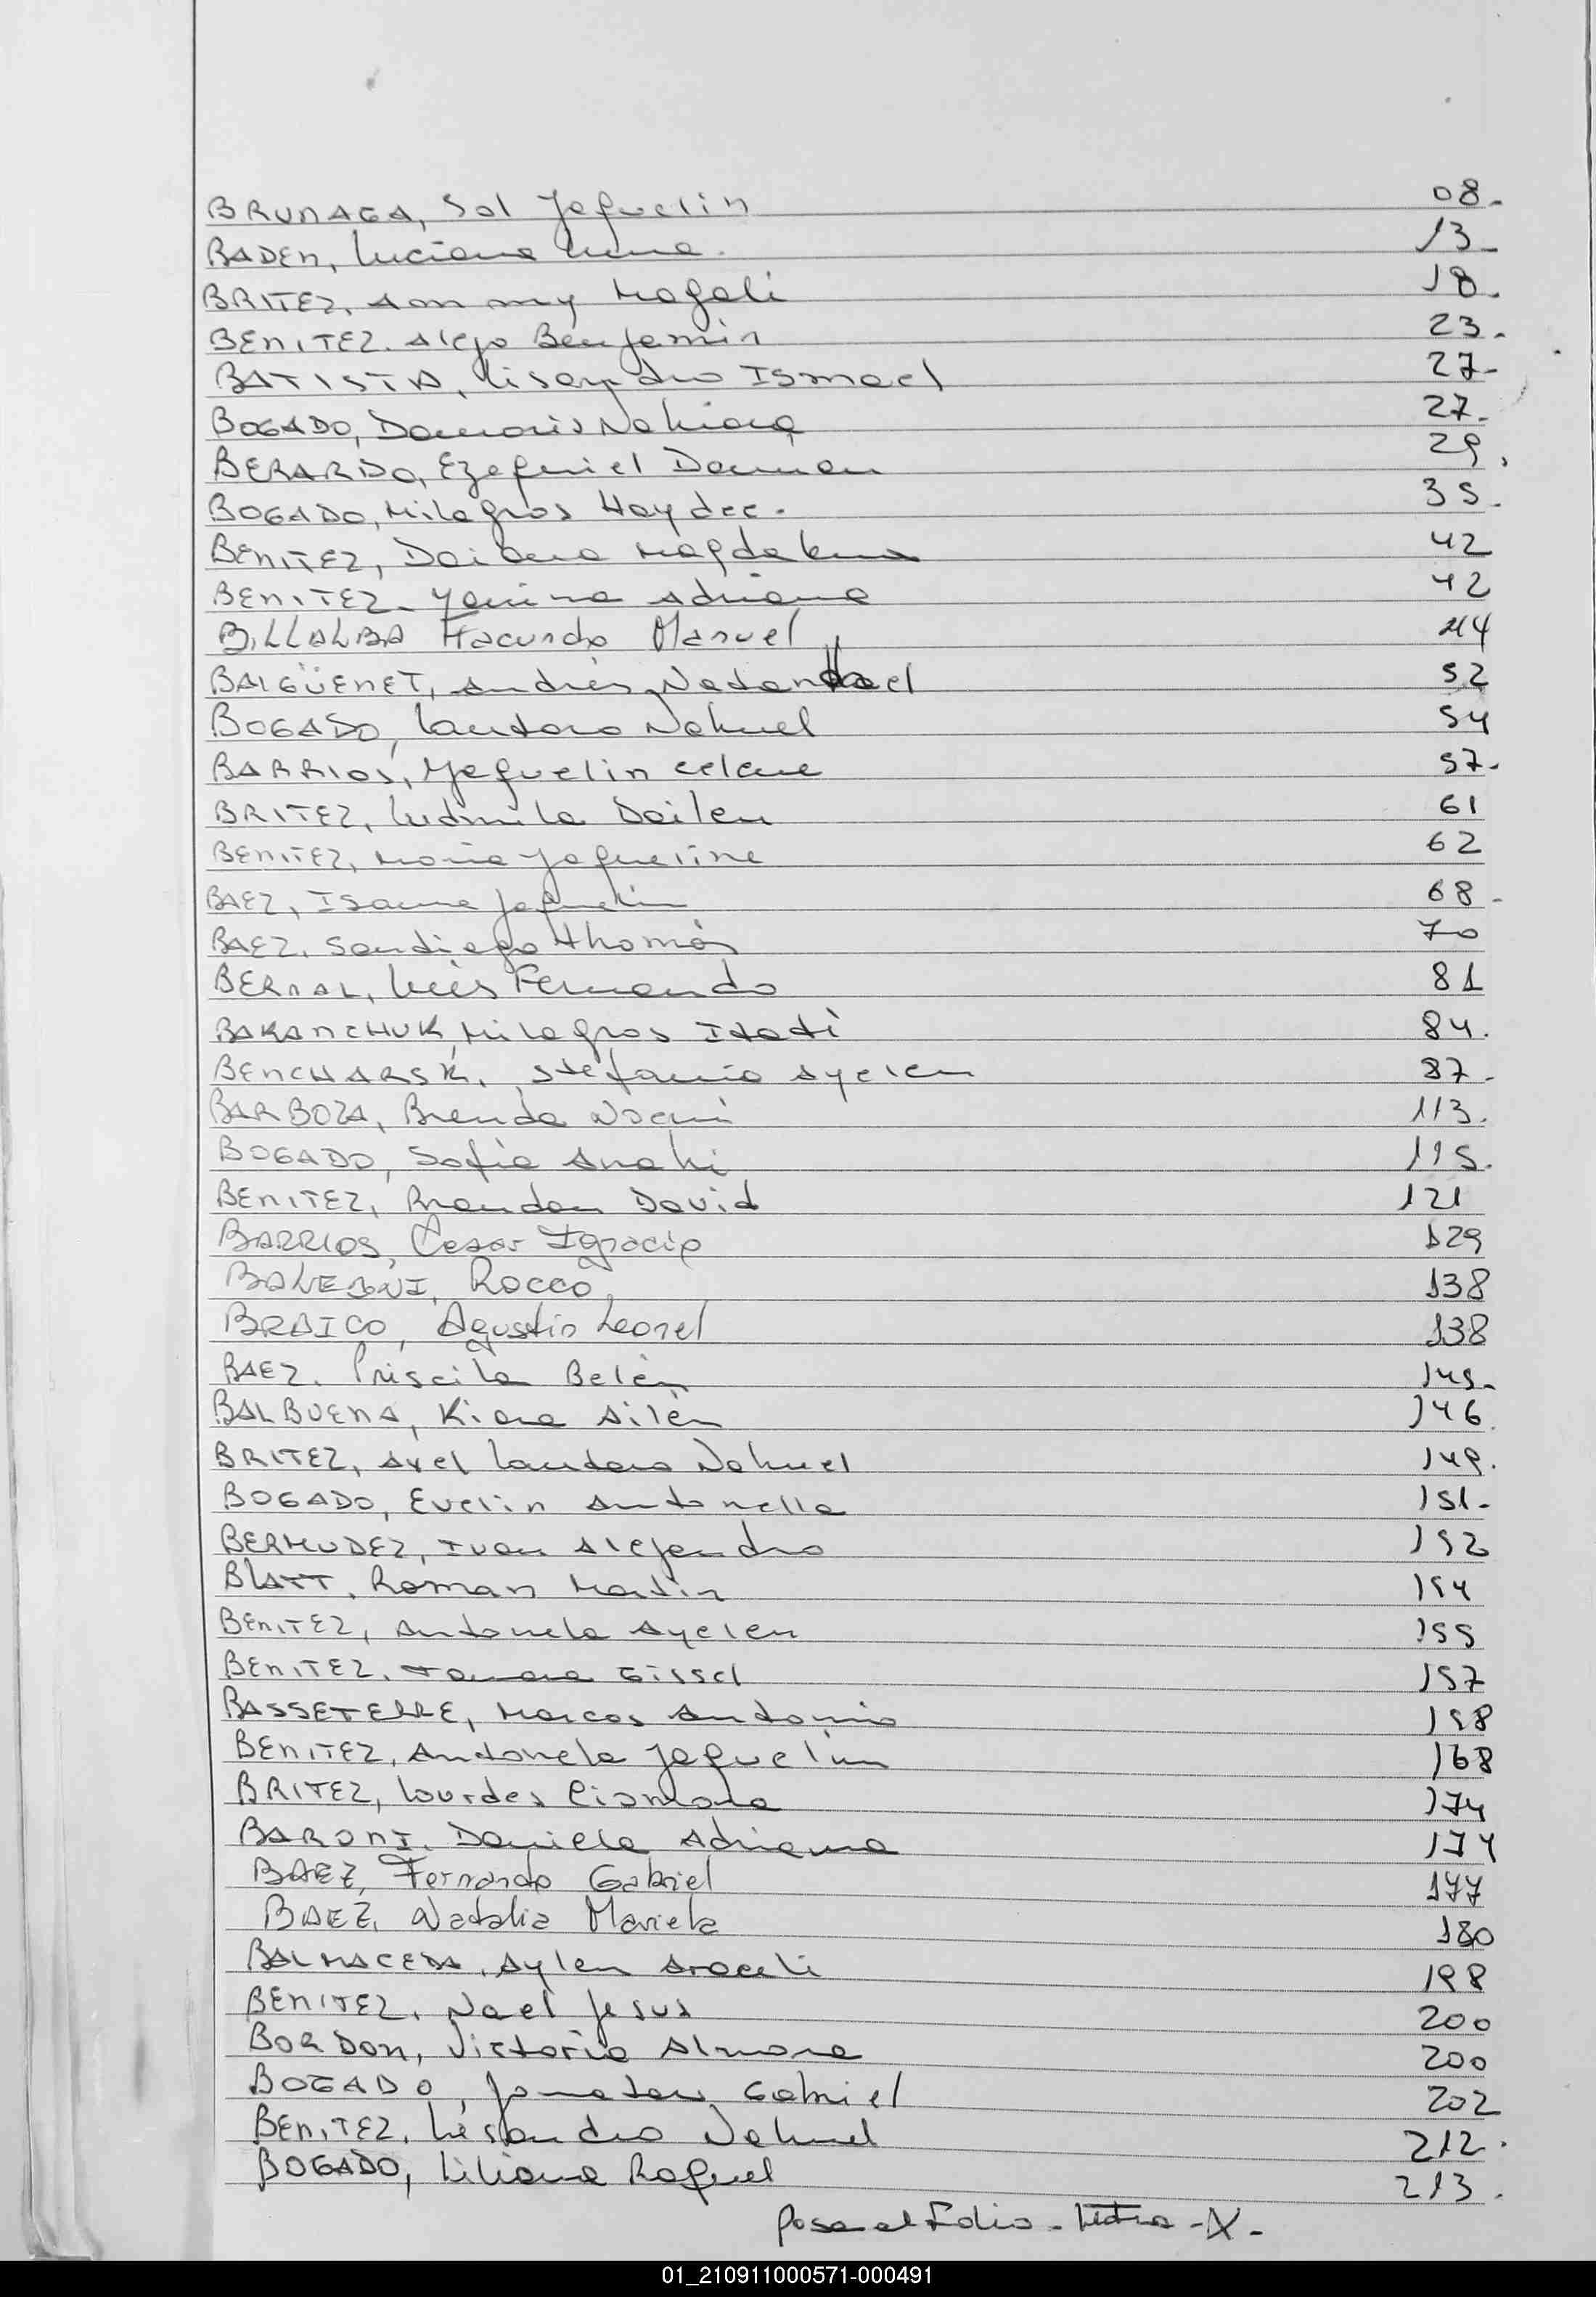 BRUNAGA, Sol Jaquelin 08.
BADEN, Luciana Luna. 13-
BRITEZ, Ammy Magali 18.
BENITEZ. Alejo Benjamin 23.
BATISTA, Lisandro Ismael 27-
BOGADO, Damaris Nahiara 27.
BERARDO, Ezequiel Damian 29,
BOGADO, Milagros Haydee. 35.
BENITEZ, Daiana Magdalena 42
BENITEZ- Yanina Adriana 42
BILLALBA Facundo Manuel 44
BALGÜENET, Andrés Natanael 52
BOGADO, Lautaro Nahuel 54
BARRIOS, Yaquelin Celene 57.
BRITEZ, Ludmila Dailen 61
BENITEZ, Maria Jaqueline 62
BAEZ, Isaura Jaquelin 68-
BAEZ, Santiago Thomás 70
BERNAL, Luis Fernando 81
BAKANCHUK, Milagros Itatí 84.
BENCHARSKI, Stefania Ayelen 87.
BARBOZA, Brenda Noemi 113.
BOGADO, Sofia Anahi 115.
BENITEZ, Brandon David 121
BARRIOS, Cesar Ignacio 129
Rocco 138
BRAICO, Agustin Leonel 138
BAEZ. Priscila Belén 145-
BALBUENA, Kiara Ailén 146.
BRITEZ, Axel Lautaro Nahuel 149.
BOGADO, Evelin Antonella 151-
BERMUDEZ, Ivan Alejandro 152
BLATT, Roman Martin 154
BENITEZ, Antonela Ayelen 155
BENITEZ. Tamara Gissel 157
BASSETERRE, Marcos Antonio 158
BENITEZ, Antonela Jaquelin 168
BRITEZ, Lourdes Xiomara 174
BARONI. Daniela Adriana 174
BAEZ, Fernando Gabriel 177
BAEZ, Natalia Mariela 180
BALMACEDA, Aylen Araceli 198
BENITEZ, Nael Jesus 200
BORDON, Victoria Almara 200
BOGADO, Jonatan Gabriel 202
BENITEZ, Lisandro Nahuel 212.
BOGADO, Liliana Raquel 213.
Pasa al Folio - Letra -X-
01_210911000571-000491